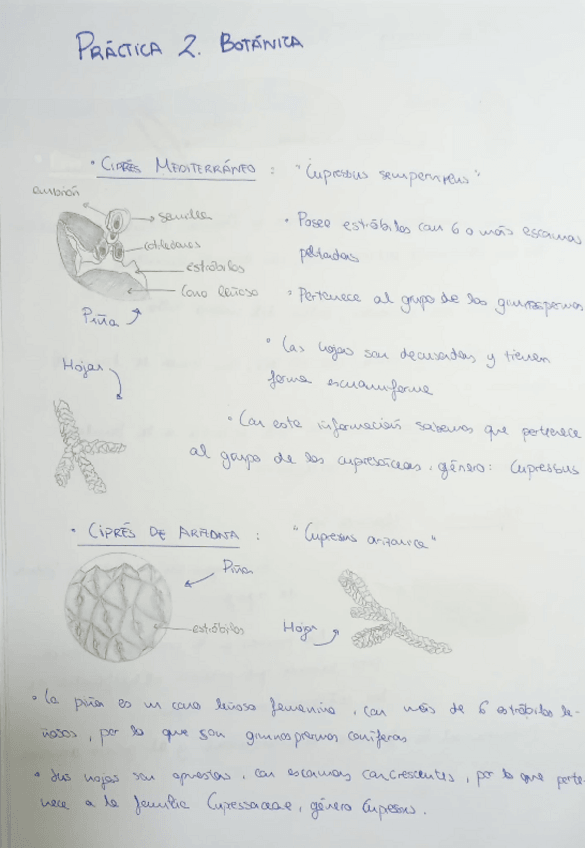 PRÁCTICA 2. BOTÁNICA
• CIPRÉS MEDITERRÁNEO : "Cupressus sempervirens"
embrión
semilla
cotiledones
estróbilos
Cono leñoso
Piña
• Posee estróbilos con 6 o más escamas
peltadas
• Pertenece al grupo de las gimnospermas
• Las hojas son decusadas y tienen
forma escuamiforme
Hojas
• Con esta información sabemos que pertenece
al grupo de las cupresáceas, género: Cupressus
• CIPRÉS DE ARIZONA : "Cupressus arizonica"
Piña
estróbilos
Hojas
• La piña es un cono leñoso femenino, con más de 6 estróbilos le-
ñosos, por lo que son gimnospermas coníferas
• Sus hojas son opuestas, con escamas concrescentes, por lo que perte-
nece a la familia Cupressaceae, género Cupressus.